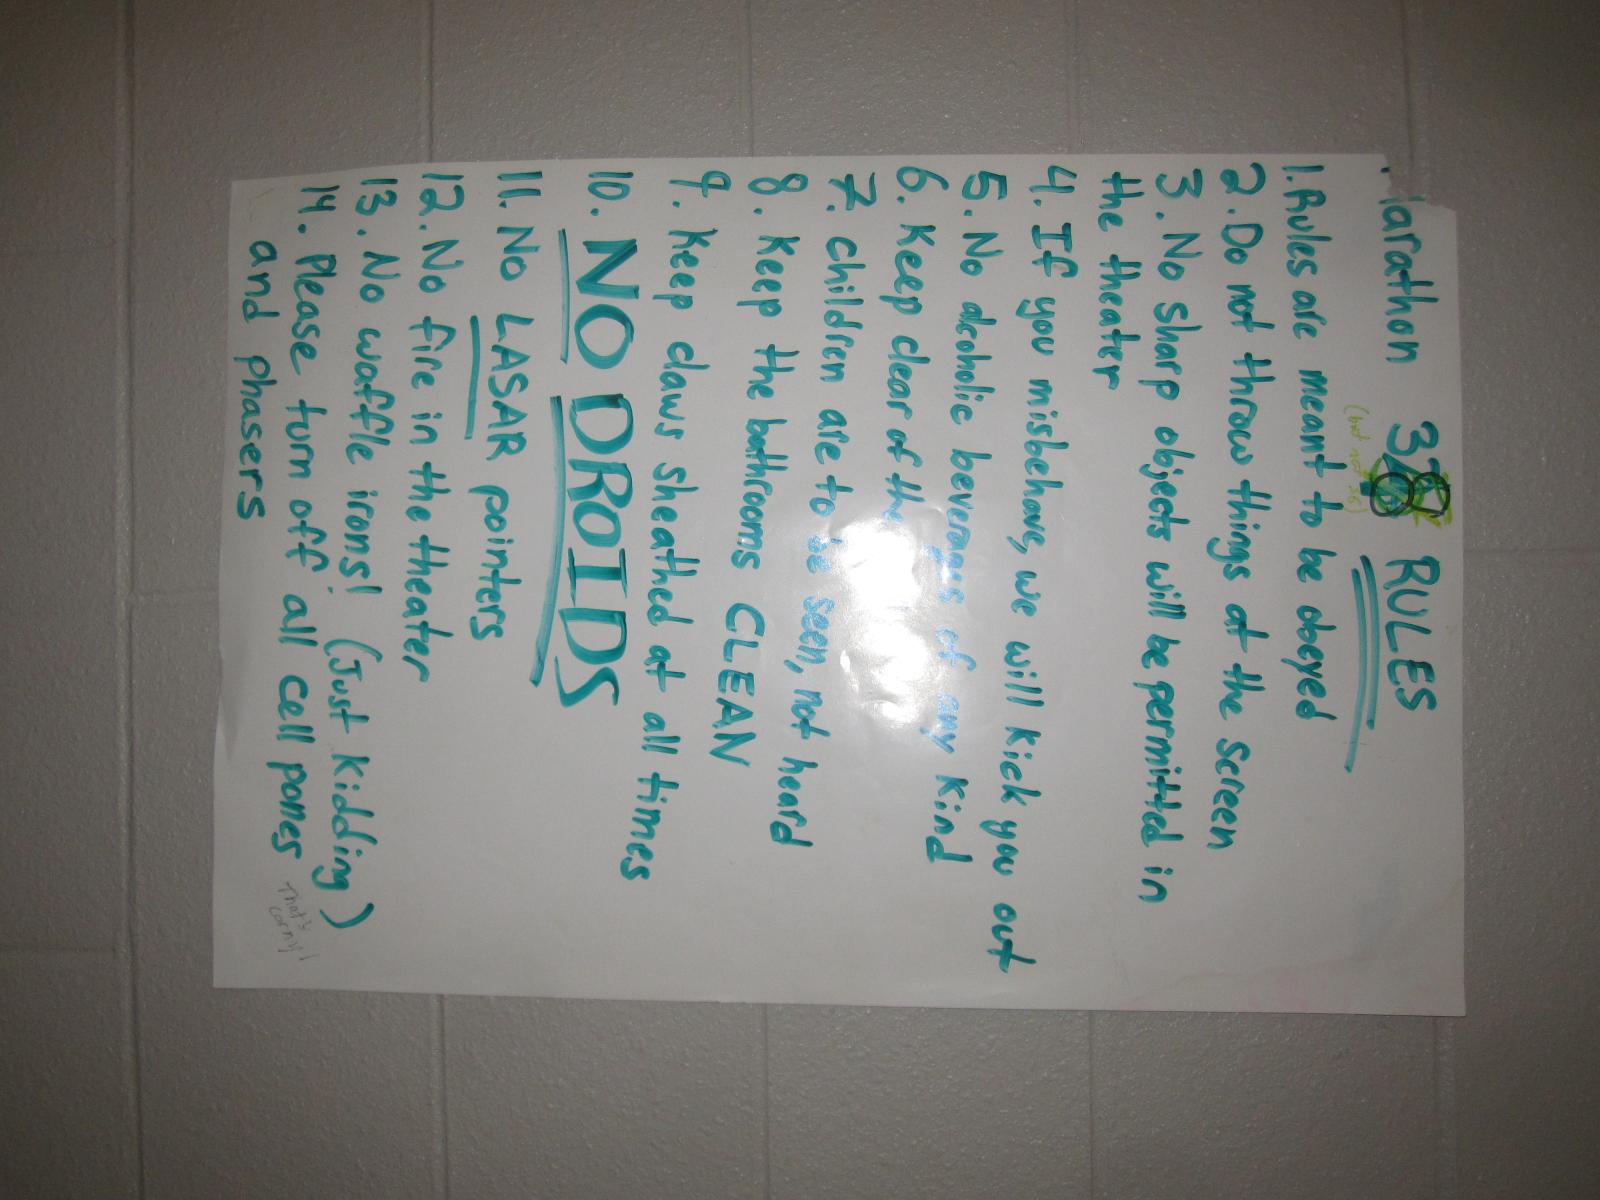 arathon 38 RULES
(but not 36)
1. Rules are meant to be obeyed
2. Do not throw things at the screen
3. No sharp objects will be permitted in
the theater
4. If you misbehave, we will kick you out
5. No alcoholic beverages of any kind
6. Keep clear of the
7. Children are to be seen, not heard
8. Keep the bathrooms CLEAN
9. Keep claws sheathed at all times
10. NO DROIDS
11. No LASAR pointers
12. No fire in the theater
13. No waffle irons! (Just kidding)
14. Please turn off all cell pones
and phasers
That's
corny!